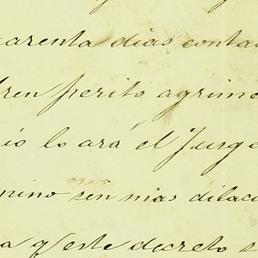 arenta dias conta
dren perito agrime
io lo ará el Jusga
mino sin mas dilac
a q/ este decreto s